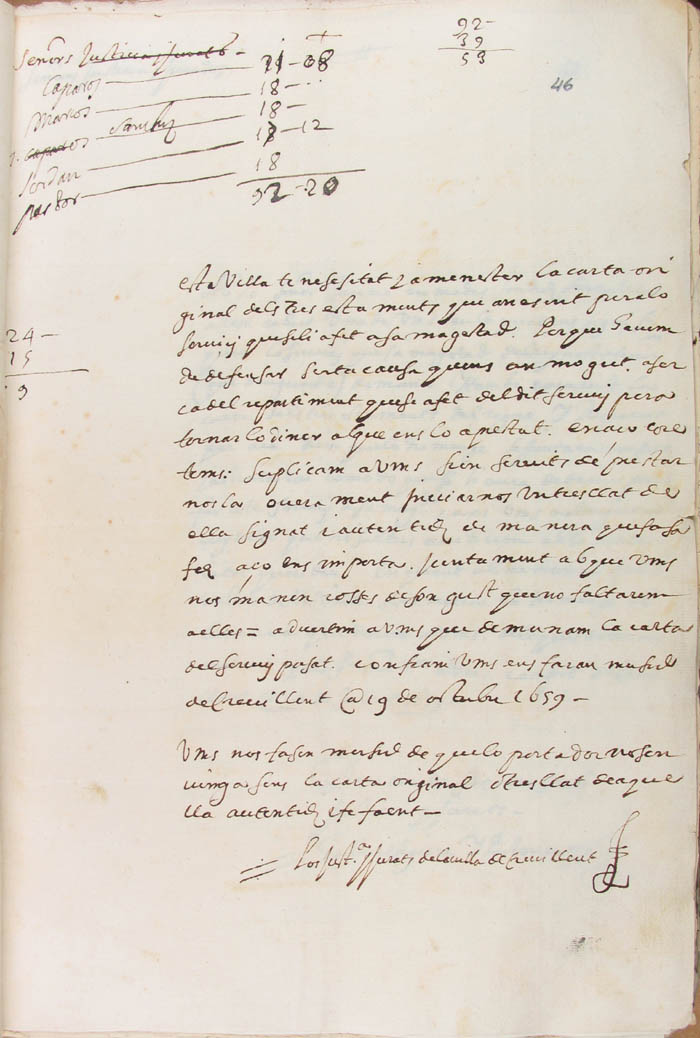 92-
39
53
46
Senors Justicia jjurats -
Caparos 21-08
Marcos 18-
caparos Sanchiz 18-
Jordan 18-12
pastor 18
92-20
24-
15
9
esta Villa te nesesitat j a menester la carta ori
ginal dels tres estaments que an escrit per alo
servij que seli a fet a sa magestad. Perque havem
de defensar serta causa quens an mogut. aser
ca del repartiment que se a fet del dit servij pera
tornar lo diner al que ens lo a prestat. en aco
tems: suplicam a Vms sien servits de prestar
nos la overament inviarnos un tresllat de
ella signat i autentich de manera que fasa
fe, aco ens importa. juntament ab que Vms
nos manen cosses de son gust que no faltarem
a elles = advertim a Vms que demanam la carta
del servij pasat. confiam Vms ens faran
de Crevillent @ 19 de octubre 1659 -
Vms nos fasen de que lo portador no sen
vinga sens la carta original o tresllat de aque
lla autentich i fefaent -
Los Just.a jjurats de la villa de Crevillent